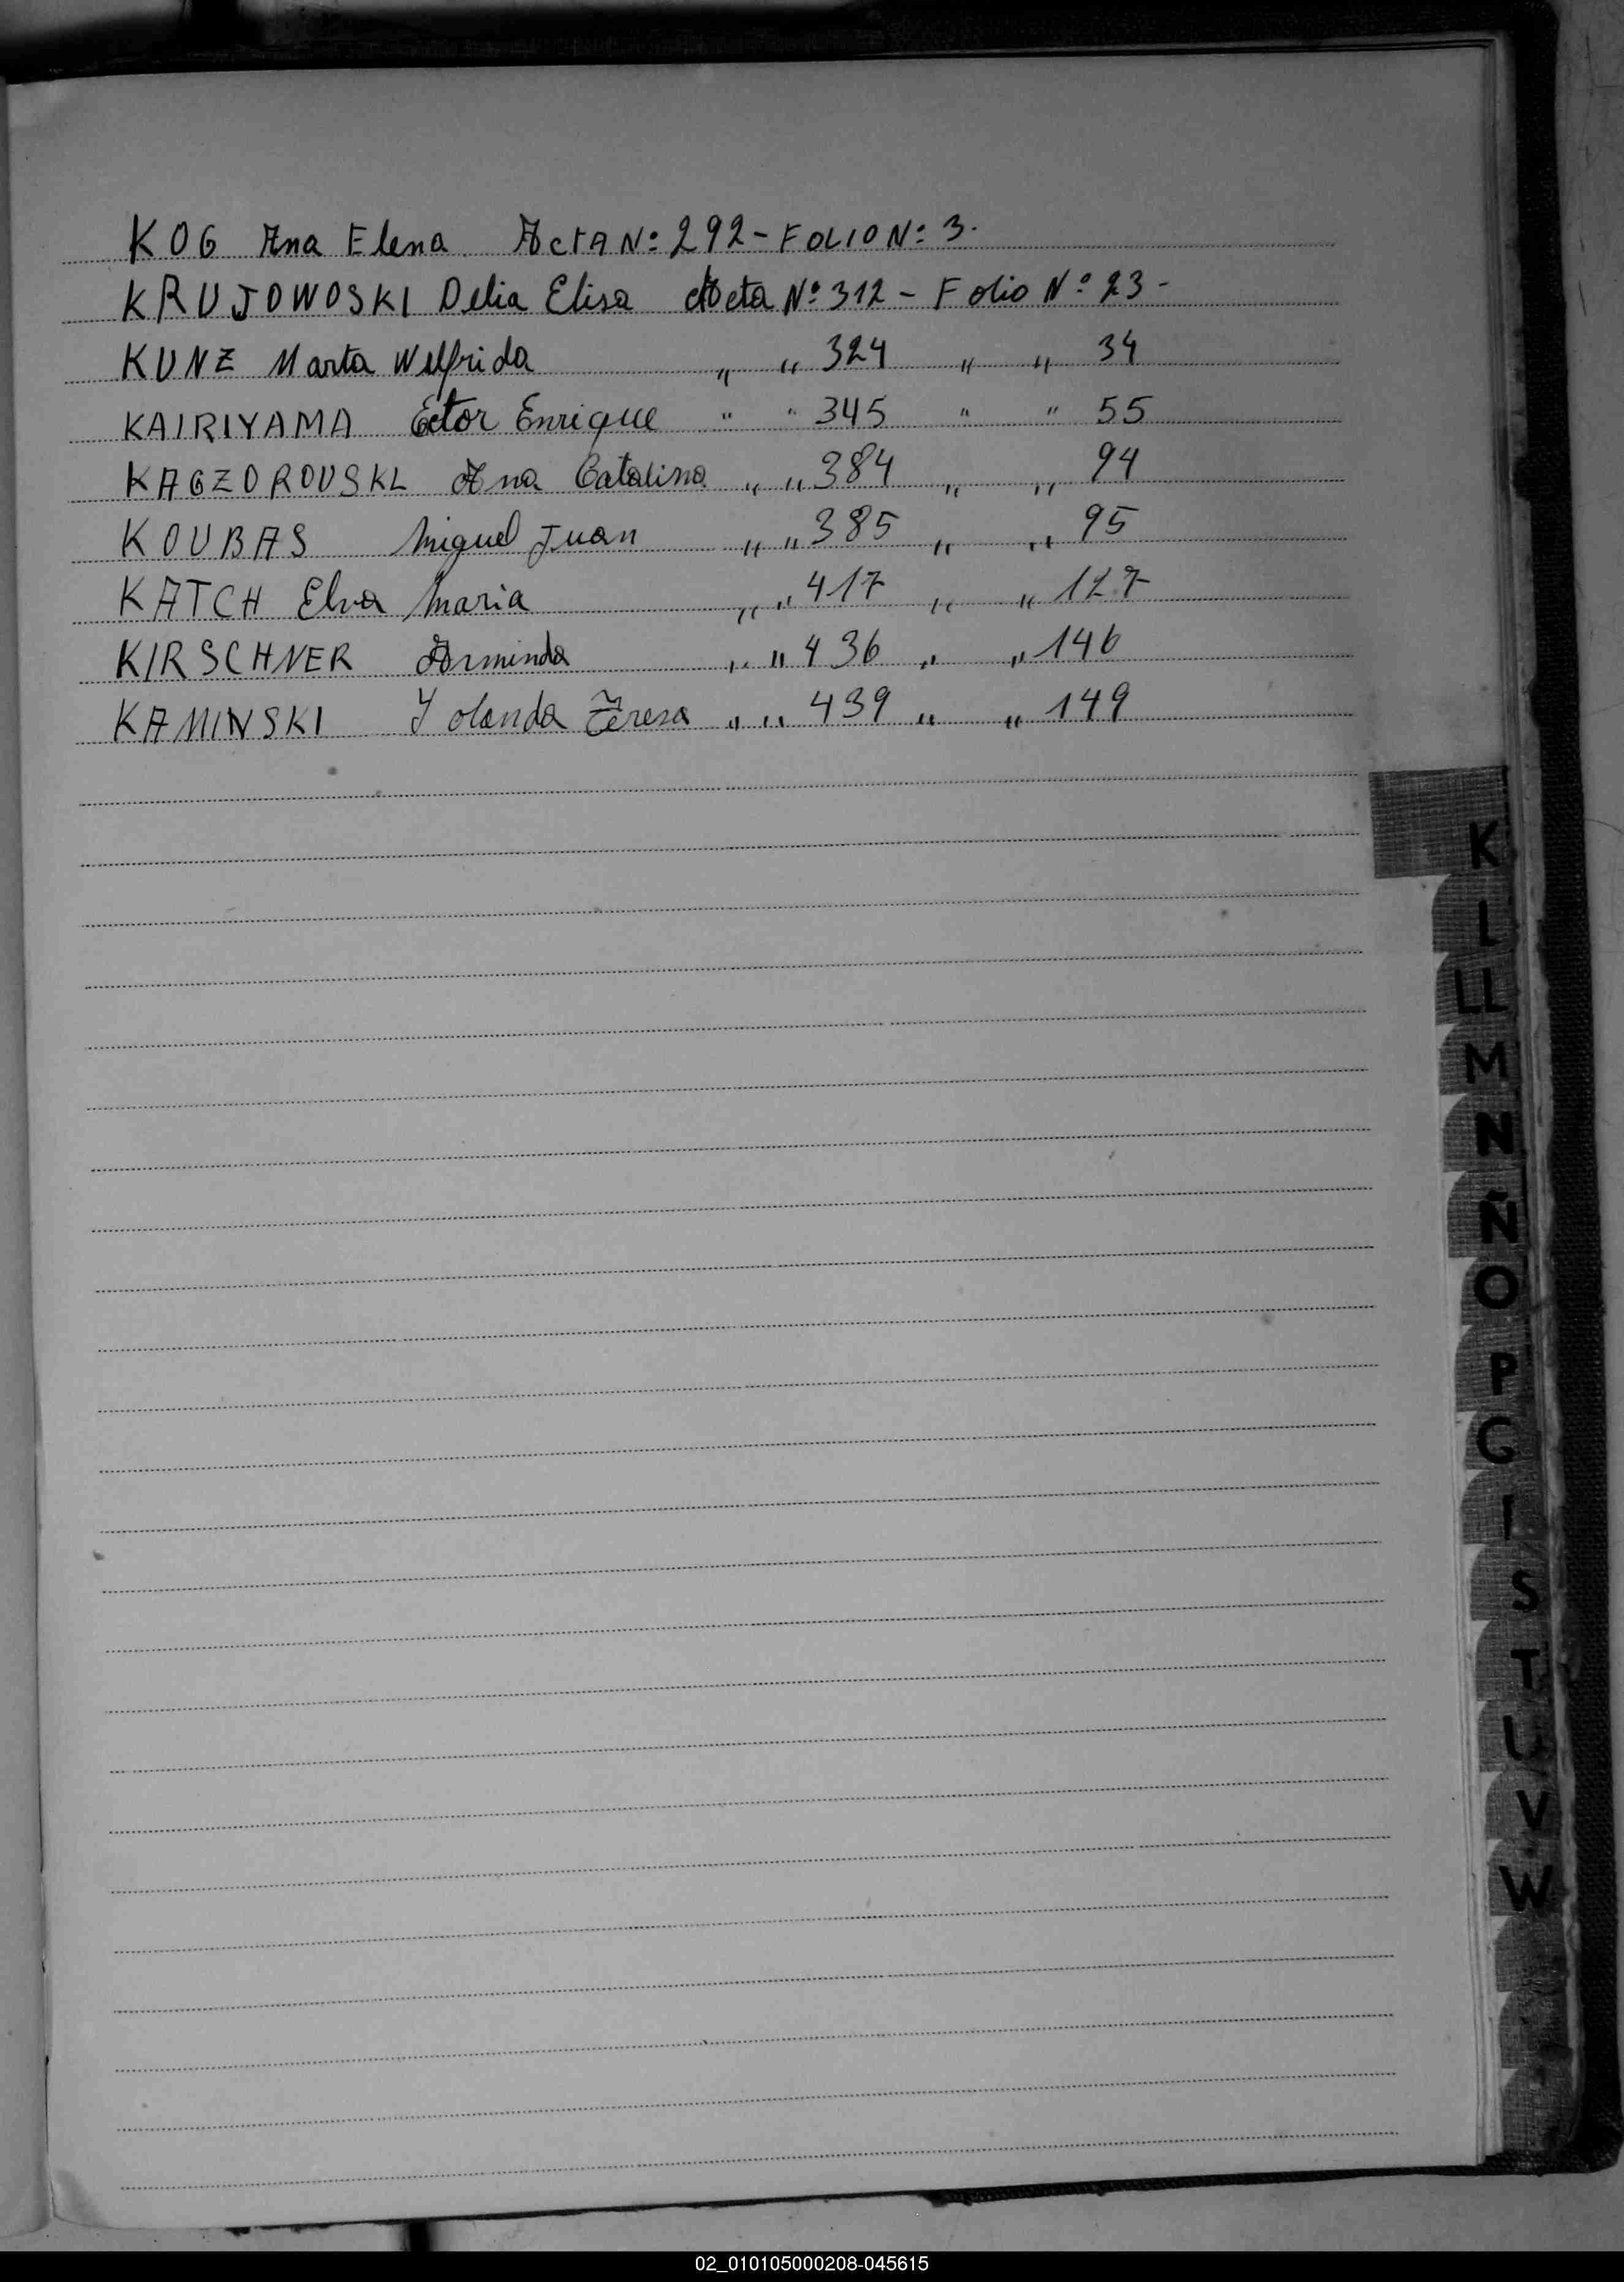 KOG Ana Elena ActA Nº 292 - FOLIO Nº 3.
KRUJOWOSKI Delia Elisa Acta Nº 312 - Folio Nº 23 -
KUNZ Marta Welfrida " " 324 " " 34
KAIRIYAMA Ector Enrique " " 345 " " 55
KAGZOROUSKI Ana Catalina " " 384 " " 94
KOUBAS Miguel Juan " " 385 " " 95
KATCH Elva Maria " " 417 " " 127
KIRSCHNER Arminda " " 436 " " 146
KAMINSKI Yolanda Teresa " " 439 " " 149
K
L
LL
M
N
Ñ
O
P
S
T
U
V
W
02_010105000208-045615